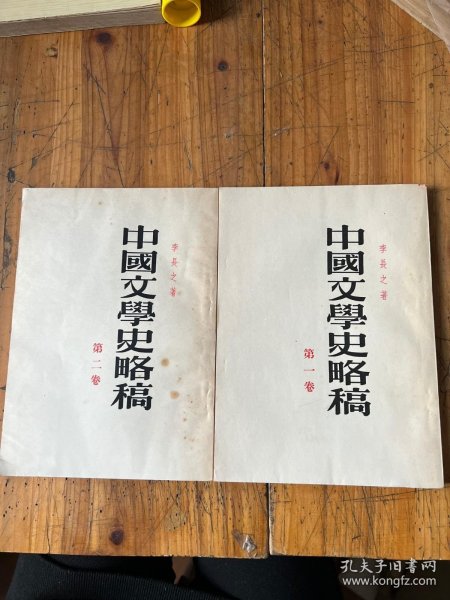 李長之著
中國文學史略稿
第二卷
李長之著
中國文學史略稿
第一卷
孔夫子旧书网
www.kongfz.com